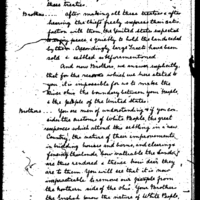 these treaties.
Brothers. After making all these treaties & after
hearing the chiefs freely express their satis-
faction with them, the United States expected
to enjoy peace, & quietly to hold the lands ceded
by them. Accordingly large Tracts have been
sold & settled as beforementioned
And now Brothers, we answer explicitly
that for the reasons which we have stated to
you it is impossible for us to make the
River Ohio the boundary between your People
& the people of the United States.
Brothers. You are men of understanding & if you con-
sider the customs of White People, the great
expences which attend their settling in a new
Country, the nature of their improvements
in building houses and barns, and clearing
fencing their lands how valuable the lands
are thus rendered & thence how dear they
are to them. You will see that it is now
impracticable to remove our people from
the northern side of the Ohio. Your Brothers
the English know the nature of White People,